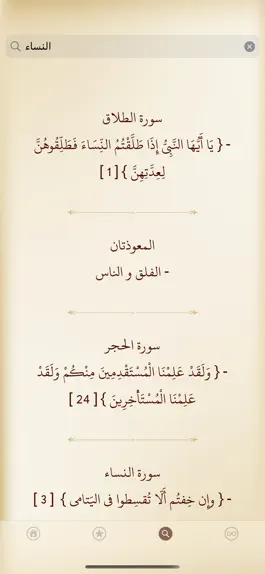 النساء
سورة الطلاق
-{ يَا أَيُّهَا النَّبِيُّ إِذَا طَلَّقْتُمُ النِّسَاءَ فَطَلِّقُوهُنَّ
لِعِدَّتِهِنَّ }[1]
المعوذتان
- الفلق و الناس
سورة الحجر
-{ وَلَقَدْ عَلِمْنَا الْمُسْتَقْدِمِينَ مِنْكُمْ وَلَقَدْ
عَلِمْنَا الْمُسْتَأْخِرِينَ }[ 24 ]
سورة النساء
-{ وإن خِفتُم ألّا تُقسِطوا في اليَتامى } [ 3 ]